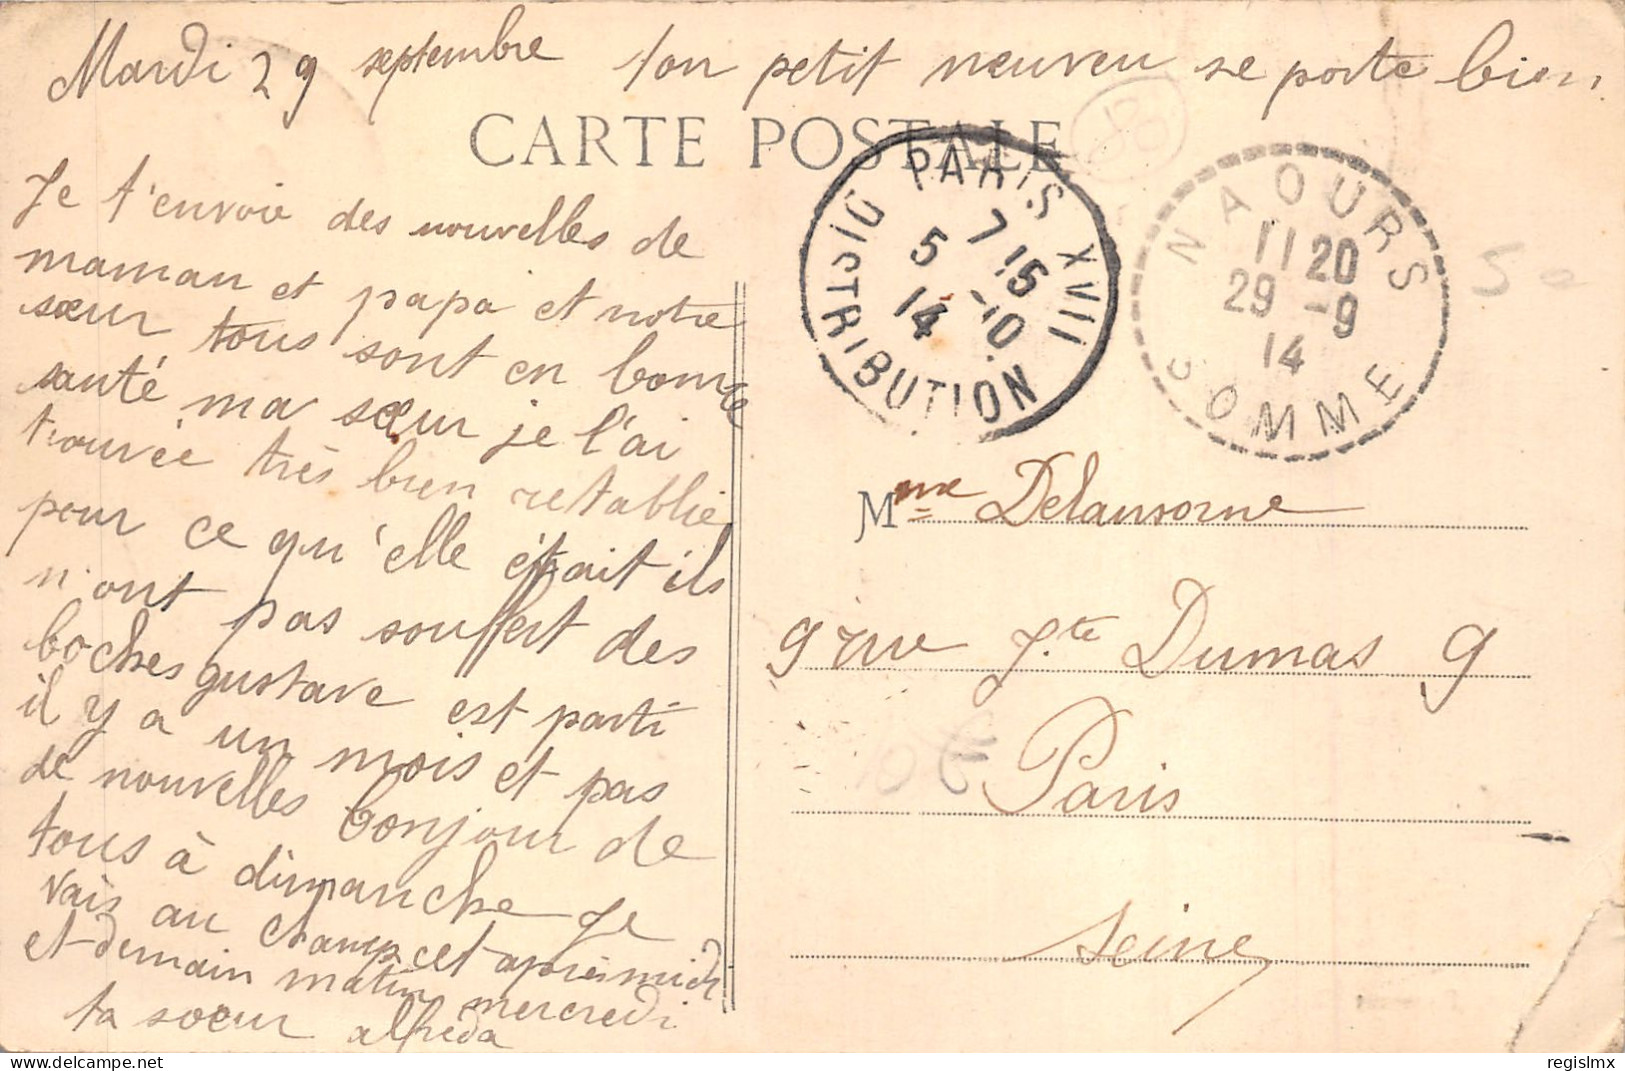 Mardi 29 septembre ton petit neuveu se porte bien
CARTE POSTALE
Je t'envoie des nouvelles de
maman et papa et notre
sœur tous sont en bonne
santé ma sœur je l'ai
trouvée très bien retablie
pour ce qu'elle était ils
n'ont pas souffert des
boches gustave est parti
il y a un mois et pas
de nouvelles bonjour de
tous à dimanche Je
vais au champ cet après midi
et demain matin mercredi
ta sœur alfréda
PARIS XVII
7 15
5 -10
14
DISTRIBUTION
NAOURS
11 20
29 -9
14
SOMME
Mme Delansorne
9 rue Jte Dumas 9
Paris
Seine
regislmx